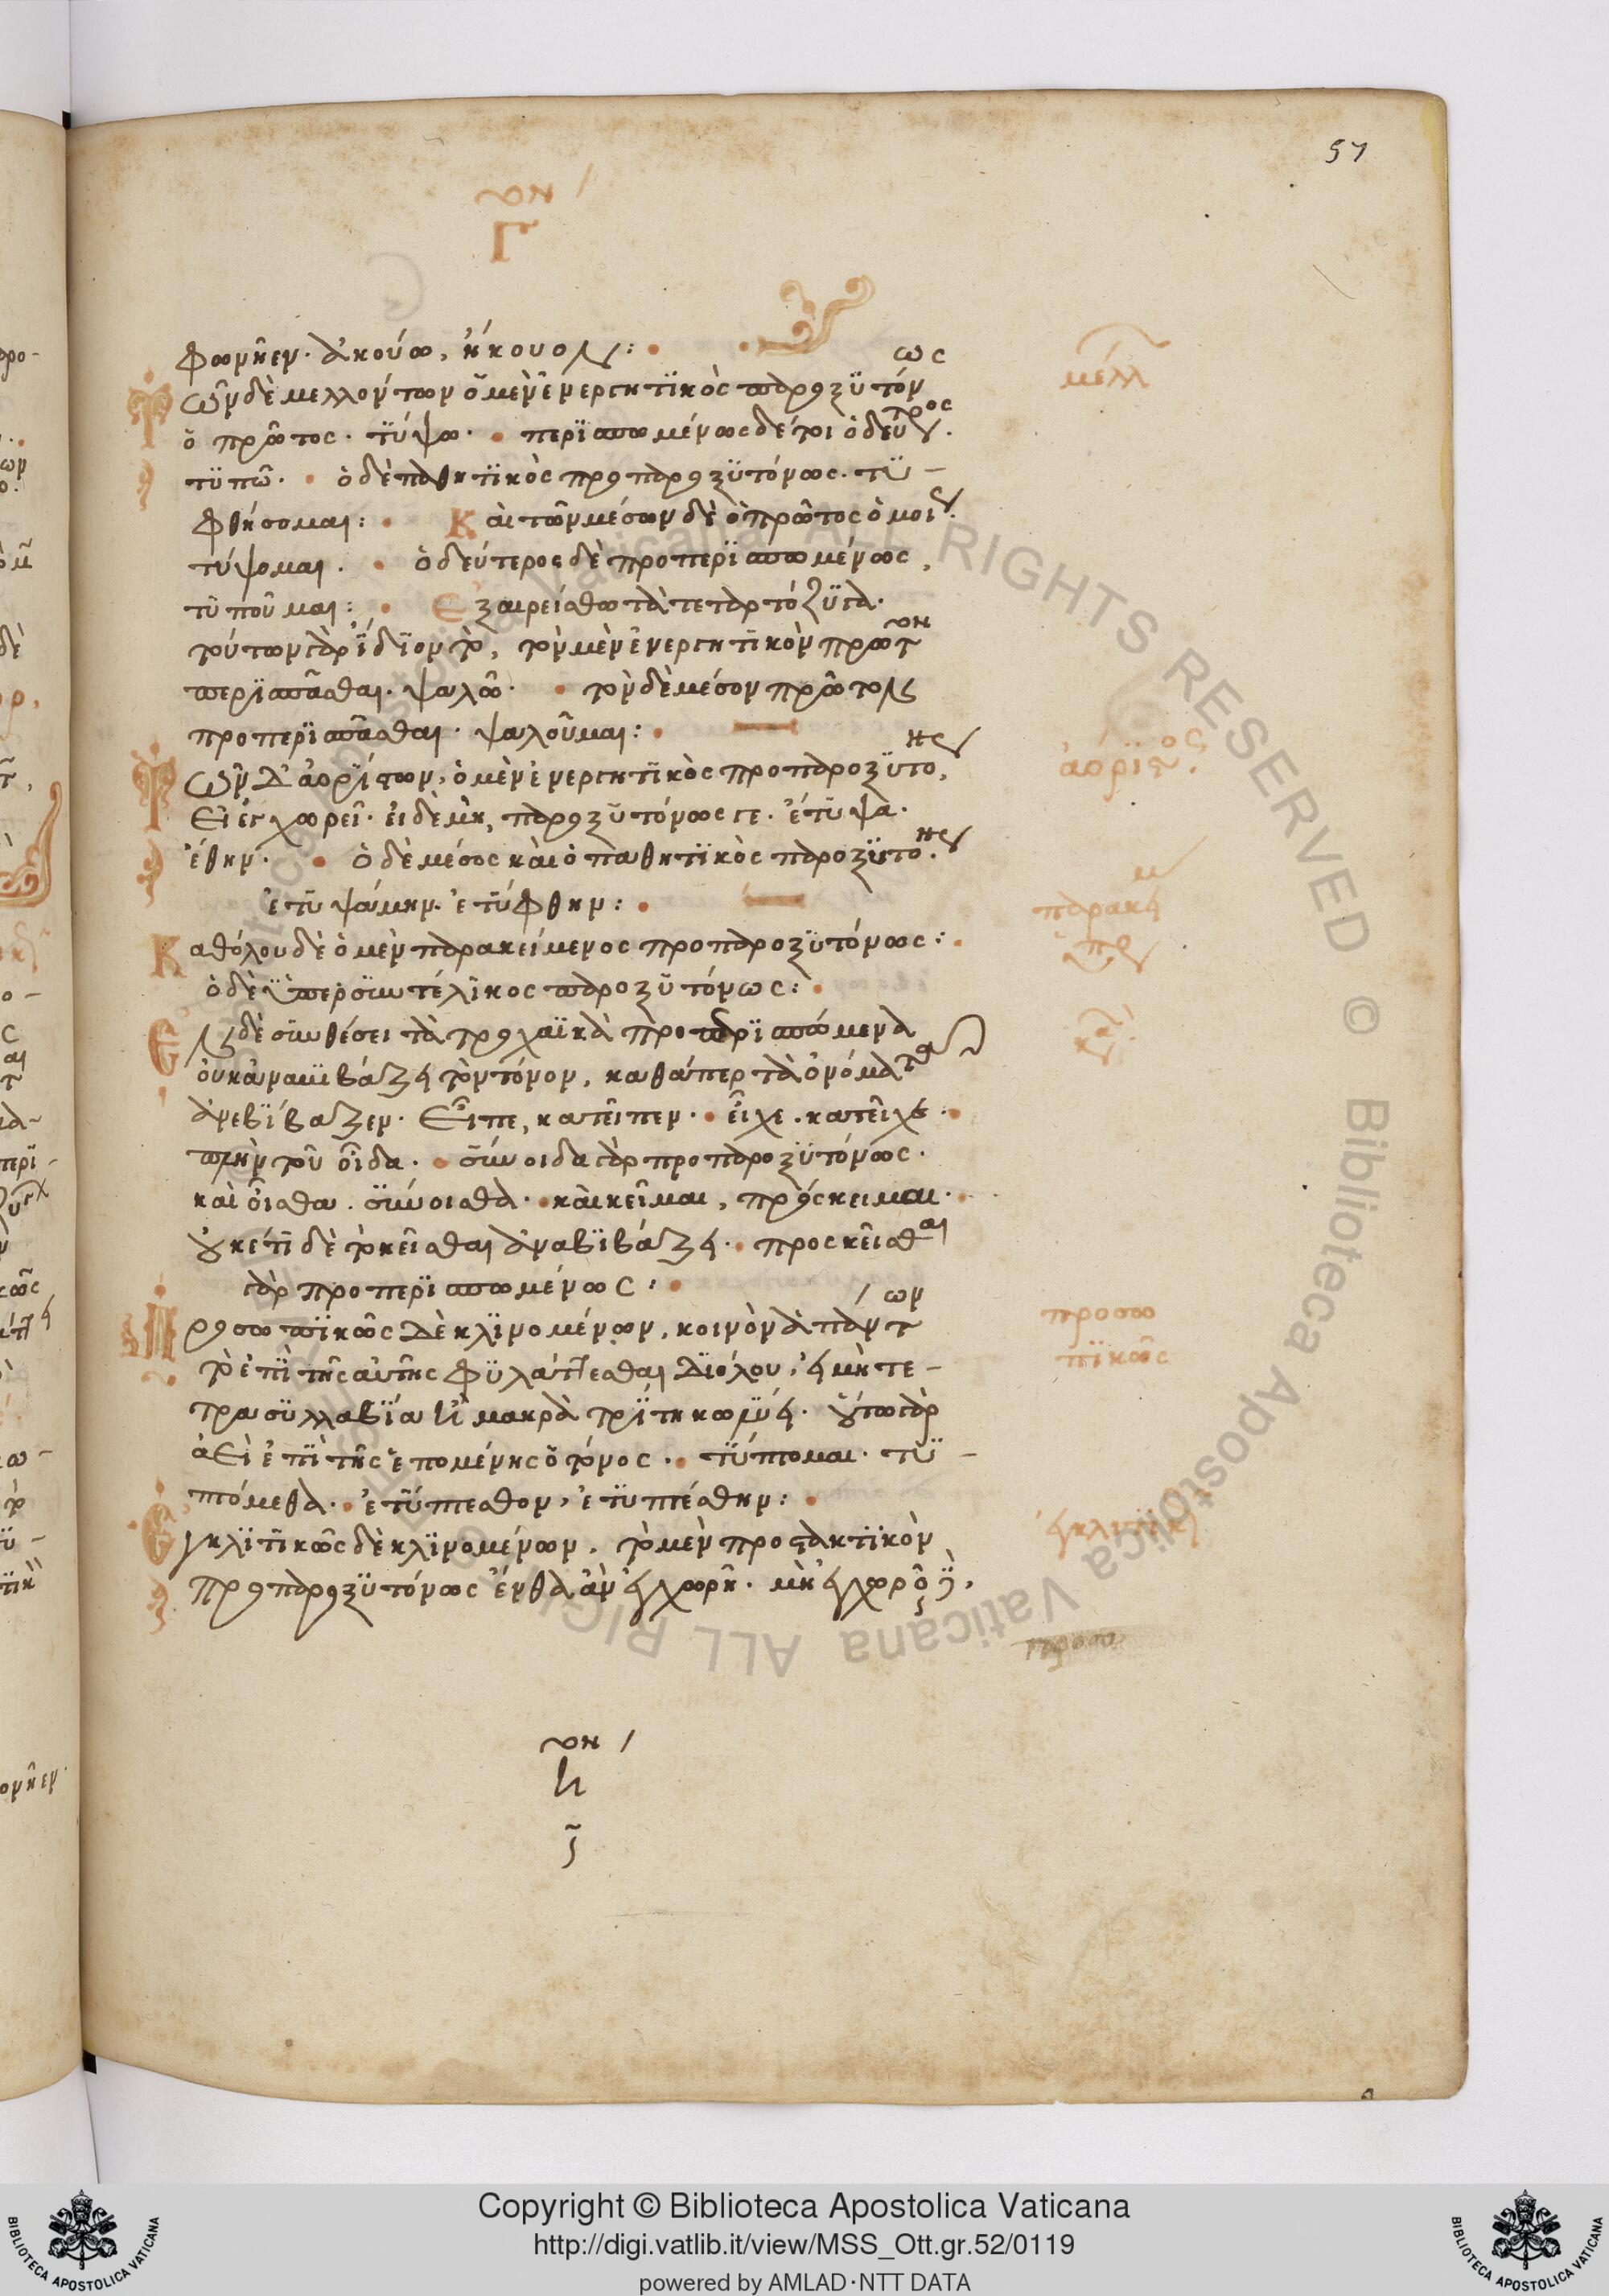 57
Γ
φωνῆεν. ἀκούω, ἤκουον:
Τῶν δὲ μελλόντων ὁ μὲν ἐνεργητικὸς παροξυτόνως
ὁ πρῶτος. τύψω. περισπωμένως δέ τοι ὁ δεύτερος.
τυπῶ. ὁ δὲ παθητικὸς προπαροξυτόνως. τυ-
φθήσομαι: Καὶ τῶν μέσων δὲ ὁ πρῶτος ὁμοίως.
τύψομαι. ὁ δεύτερος δὲ προπερισπωμένως,
τυποῦμαι: Ἐξαιρείσθω τὰ τεταρτόζυγα.
τούτων γὰρ ἴδιον τὸ, τὸν μὲν ἐνεργητικὸν πρῶτον
περισπᾶσθαι. ψαλῶ. τὸν δὲ μέσον πρῶτον
προπερισπᾶσθαι. ψαλοῦμαι:
Τῶν δ' ἀορίστων, ὁ μὲν ἐνεργητικὸς προπαροξύτονος,
εἰ ἐγχωρεῖ. εἰ δὲ μὴ, παροξυτόνως γε. ἔτυψα.
ἔθην. ὁ δὲ μέσος καὶ ὁ παθητικὸς παροξύτονος.
ἐτυψάμην. ἐτύφθην:
Καθόλου δὲ ὁ μὲν παρακείμενος προπαροξυτόνως:
ὁ δὲ ὑπερσυντέλικος παροξυτόνως:
Ἐν δὲ συνθέσει τὰ τροχαϊκὰ προπερισπώμενα
οὐκ ἀναβιβάζει τὸν τόνον, καθάπερ τὰ ὀνόματα
ἀνεβίβαζεν. εἶπε, κατεῖπεν. εἶχε. κατεῖχε.
πλὴν τοῦ οἶδα. σύνοιδα γὰρ προπαροξυτόνως.
καὶ οἶσθα. σύνοισθα. καὶ κεῖμαι, πρόσκειμαι.
οὐκέτι δὲ τὸ κεῖσθαι ἀναβιβάζει. προσκεῖσθαι
γὰρ προπερισπωμένως:
Προσωπικῶς δὲ κλινομένων, κοινὸν ἁπάντων
τὸ ἐπὶ τῆς αὐτῆς φυλάττεσθαι διόλου, εἰ μὴ τε-
τρασυλλαβία ἢ μακρὰ τρίτη κωλύει. οὕτω γὰρ
ἀεὶ ἐπὶ τῆς ἑπομένης ὁ τόνος. τύπτομαι. τυ-
πτόμεθα. ἐτύπτεσθον, ἐτυπτέσθην:
Ἐγκλιτικῶς δὲ κλινομένων, τὸ μὲν προστακτικὸν
προπαροξυτόνως ἔνθα ἂν ἐγχωρῇ. μὴ ἐγχωροῦν,
μέλλ
ἀόριστος.
παρακεί
ὑπερ
προσω
πικῶς
ἐγκλιτικ
προσω
Copyright © Biblioteca Apostolica Vaticana
http://digi.vatlib.it/view/MSS_Ott.gr.52/0119
powered by AMLAD·NTT DATA
BIBLIOTECA APOSTOLICA VATICANA
BIBLIOTECA APOSTOLICA VATICANA